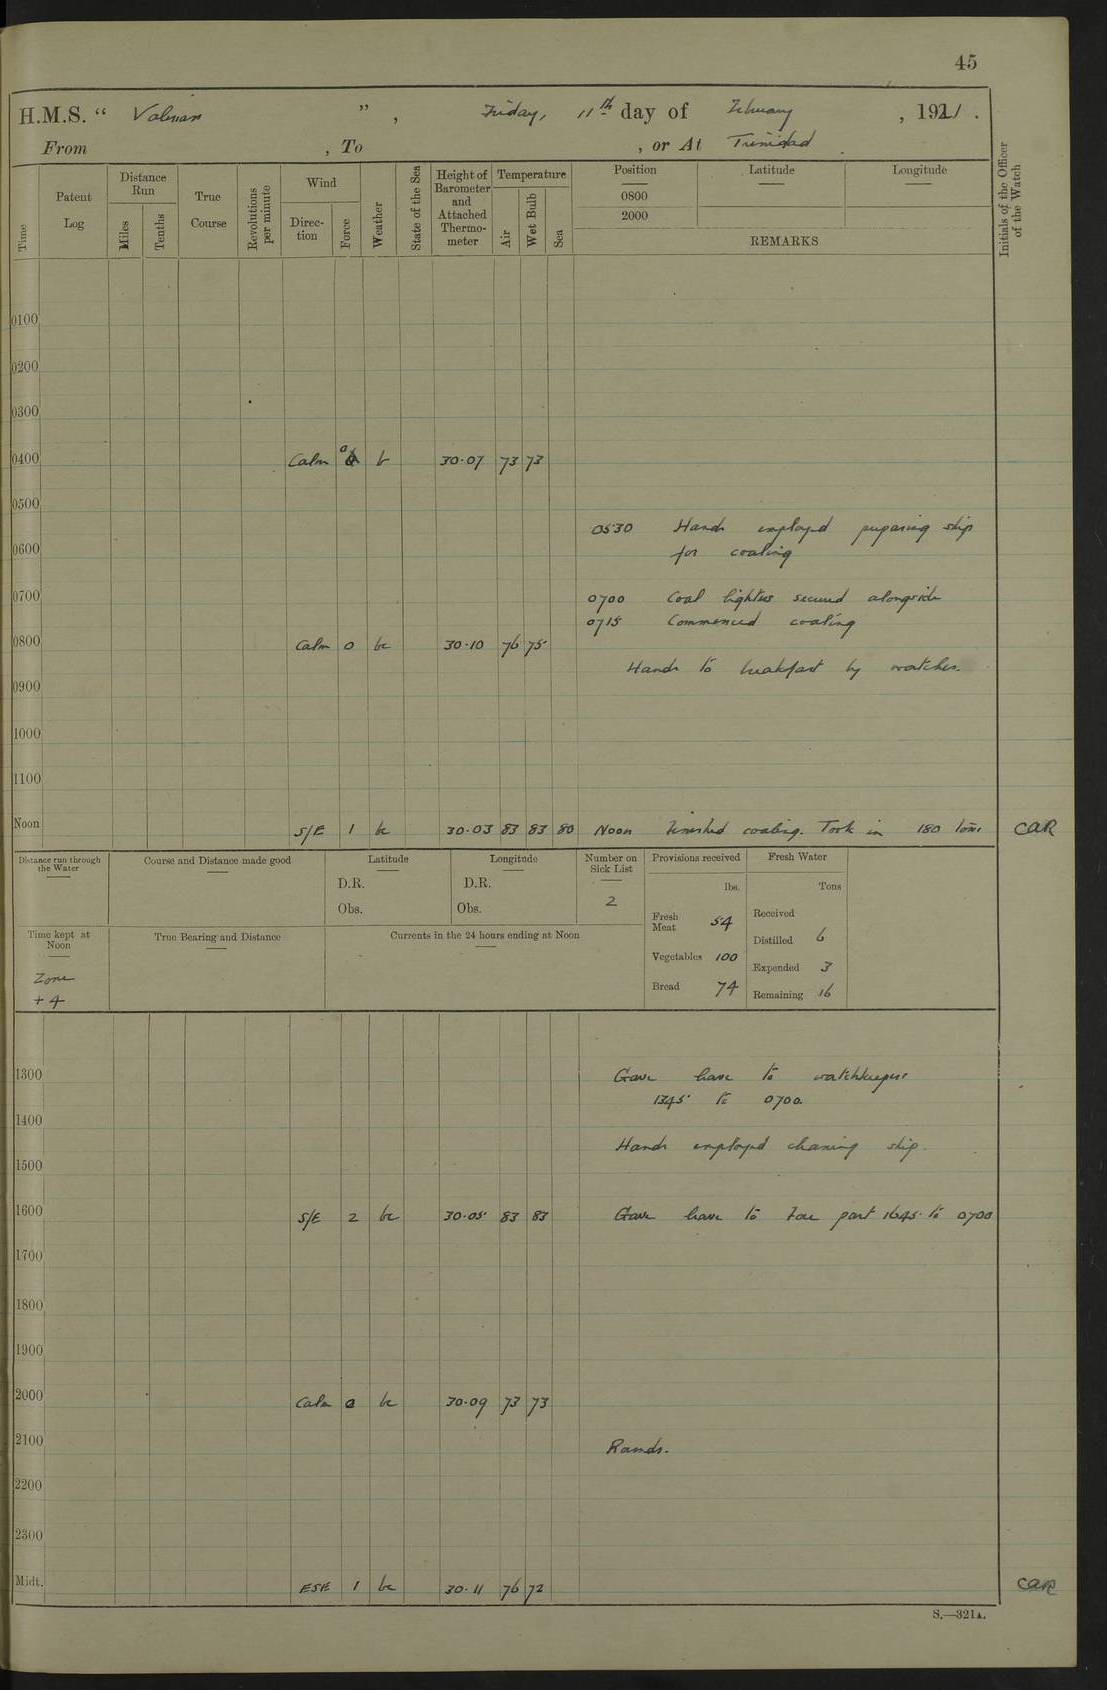 45
H.M.S. " Valerian ", Friday, 11th day of February, 1921.
From , To , or At Trinidad.
Time
Patent Log
Distance Run
Miles
Tenths
True Course
Revolutions per minute
Wind
Direction
Force
Weather
State of the Sea
Height of Barometer and Attached Thermometer
Temperature
Air
Wet Bulb
Sea
Position
0800
2000
Latitude
Longitude
REMARKS
Initials of the Officer of the Watch
0100
0200
0300
0400 Calm 0 b 30.07 73 73
0500
0530 Hands employed preparing ship
0600 for coaling
0700 0700 Coal lighters secured alongside
0715 Commenced coaling
0800 Calm 0 bc 30.10 76 75
Hands to breakfast by watches.
0900
1000
1100
Noon S/E 1 bc 30.03 83 83 80 Noon Finished coaling. Took in 180 tons CAR
Distance run through the Water
Course and Distance made good
Latitude
D.R.
Obs.
Longitude
D.R.
Obs.
Number on Sick List
2
Provisions received
lbs.
Fresh Meat 54
Vegetables 100
Bread 74
Fresh Water
Tons
Received
Distilled 6
Expended 3
Remaining 16
Time kept at Noon
Zone
+ 4
True Bearing and Distance
Currents in the 24 hours ending at Noon
1300 Gave leave to watchkeepers
1345 to 0700.
1400
Hands employed cleaning ship.
1500
1600 S/E 2 bc 30.05 83 83 Gave leave to Fore part 1645 to 0700
1700
1800
1900
2000 Calm 0 bc 30.09 73 73
2100 Rounds.
2200
2300
Midt. ESE 1 bc 30.11 76 72 CAR
S.—321A.